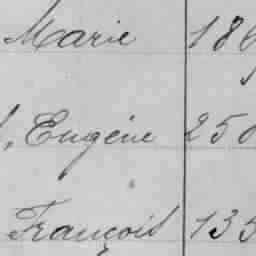 Marie 186
, Eugène 250
François 135